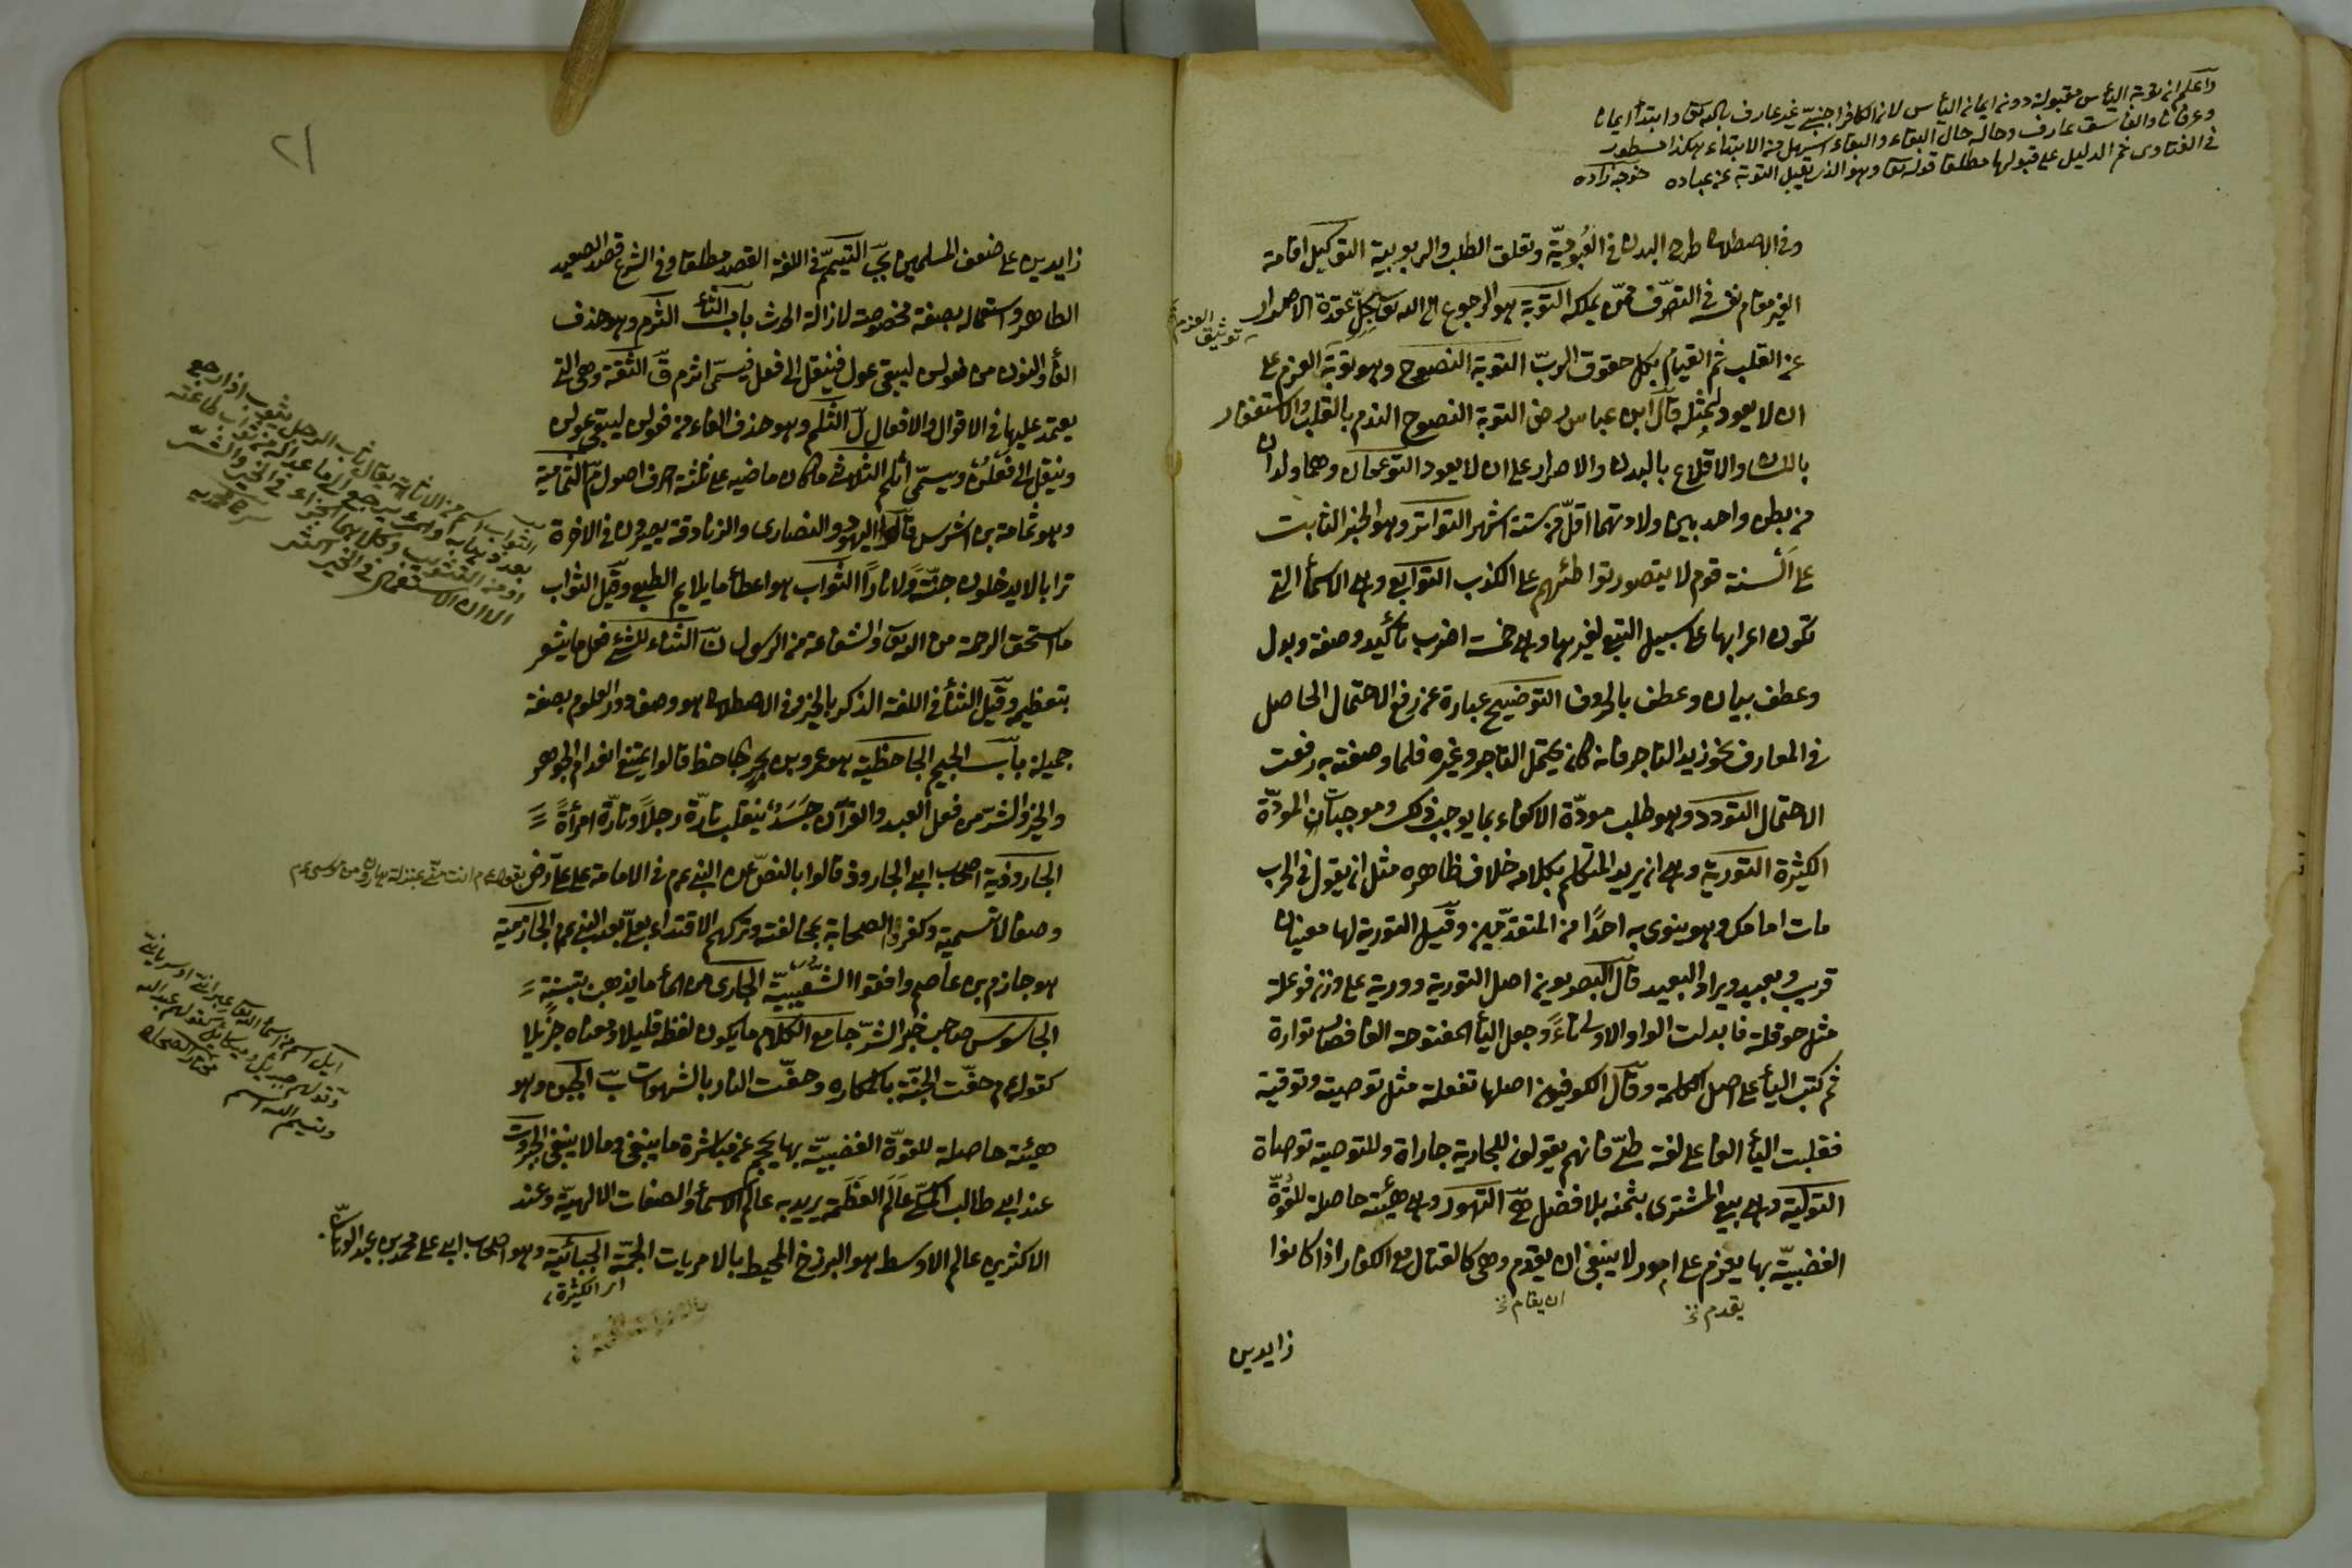 واعلم ان توبة اليأس مقبولة دون ايمان اليأس لان الكافر اجنبي غير عارف بالله تعا وابتدأ ايمانا
وعرفانا والفاسق عارف وحاله حال البقاء والبقاء اسهل من الابتداء هكذا مسطور
في الفتاوى ثم الدليل على قبولها مطلقا قوله تعا وهو الذى يقبل التوبة عن عباده خوجه زاده
وفي الاصطلاح طرح البدن في العبودية وتعلق القلب بالربوبية التوكيل اقامة
الغير مقام نفسه في التصرف ممن يملكه التوبة هو الرجوع الى الله تعا بحل عقدة الاصرار
عن القلب ثم القيام بكل حقوق الرب التوبة النصوح وهو توثيق العزم على
ان لا يعود لمثله قال ابن عباس رض التوبة النصوح الندم بالقلب والاستغفار
باللسان والاقلاع بالبدن والاصرار على ان لا يعود التوءمان وهما ولدان
من بطن واحد بين ولادتهما اقل من ستة اشهر التواتر وهو الخبر الثابت
على السنة قوم لا يتصور تواطئهم على الكذب التوابع وهى الاسمأ التى
تكون اعرابها على سبيل التبع لغيرها وهى خمسة اضرب تأكيد وصفة وبدل
وعطف بيان وعطف بالحروف التوضيح عبارة عن رفع الاحتمال الحاصل
في المعارف نحو زيد التاجر فانه كان يحتمل التاجر وغيره فلما وصفته به رفعت
الاحتمال التودد وهو طلب مودة الاكفاء بما يوجب ذلك وموجبات المودة
الكثيرة التورية وهى ان يريد المتكلم بكلامه خلاف ظاهره مثل ان يقول في الحرب
مات امامكم وهو ينوى به احدا من المتقدمين وقيل التورية لها معنيان
قريب وبعيد ويراد البعيد قال البصريون اصل التورية وورية على وزن فوعلة
مثل حوقلة فابدلت الواو الاولى تاء وجعل اليأ المفتوحة الفا فصار توارة
ثم كتب اليأ على اصل الكلمة وقال الكوفيون اصلها تفعلة مثل توصية وتوقية
فقلبت اليأ الفا على لغة طئ فانهم يقولون للجارية جاراة وللتوصية توصاة
التولية وهى بيع المشترى بثمنه بلا فضل التهور وهى هيئة حاصلة للقوة
الغضبية بها يعزم على امور لا ينبغى ان يقدم وهى كالقتال مع الكفار اذا كانوا
يقدم نخ
ان يقام نخ
زايدين
٢١
زايدين على ضعف المسلمين التيمم في اللغة القصد مطلقا وفي الشرع قصد الصعيد
الطاهر واستعماله بصفة مخصوصة لازالة الحدث باب الثأ الثرم وهو حذف
الفأ والنون من فعولن ليبقى عول فينقل الى فعل فيسمى اثرم الثقة وهى التى
يعتمد عليها في الاقوال والافعال الثلم وهو حذف الفاء من فعولن ليبقى عولن
وينقل الى فعلن ويسمى اثلم الثلاثى ما كان ماضيه على ثلثة احرف اصول الثمامية
وهو ثمامة بن اشرس قالوا اليهود والنصارى والزنادقة يصيرون في الاخرة
ترابا لا يدخلون جنة ولا نارا الثواب هو اعطأ ما يلايم الطبع وقيل الثواب
ما استحق الرحمة من الله تعا والشفاعة من الرسول الثناء للشئ فعل ما يشعر
بتعظيمه وقيل الثنأ في اللغة الذكر بالخير وفي الاصطلاح هو وصف ذوى العلوم بصفة
جميلة باب الجيم الجاحظية هو عمرو بن بحر جاحظ قالوا يمتنع انعدام الجوهر
والخير والشر من فعل العبد والقرآن جسد ينقلب تارة رجلا وتارة امرأة
الجارودية اصحاب ابى الجارود قالوا بالنص عن النبى عم في الامامة على على رض بقوله عم انت منى بمنزلة هارون من موسى عم
وصفا لا تسمية وكفروا الصحابة بمخالفته وتركهم الاقتداء بعلى بعد النبى عم الجازمية
هو جازم بن عاصم وافقوا الشعيبية الجارى من المأ ما يذهب بتبنة
الجاسوس صاحب خبر الشر جامع الكلام ما يكون لفظه قليلا ومعناه جزيلا
كقوله عم حفت الجنة بالمكاره وحفت النار بالشهوات الجبن وهو
هيئة حاصلة للقوة الغضبية بها يحجم عن مباشرة ما ينبغى وما لا ينبغى الجبروت
عند ابى طالب المكى عالم العظمة يريد به عالم الاسمأ والصفات الالهية وعند
الاكثرين عالم الاوسط هو البرزخ المحيط بالامريات الجمة الجبائية وهو اصحاب ابى على محمد بن عبد الوهاب
اى الكثيرة